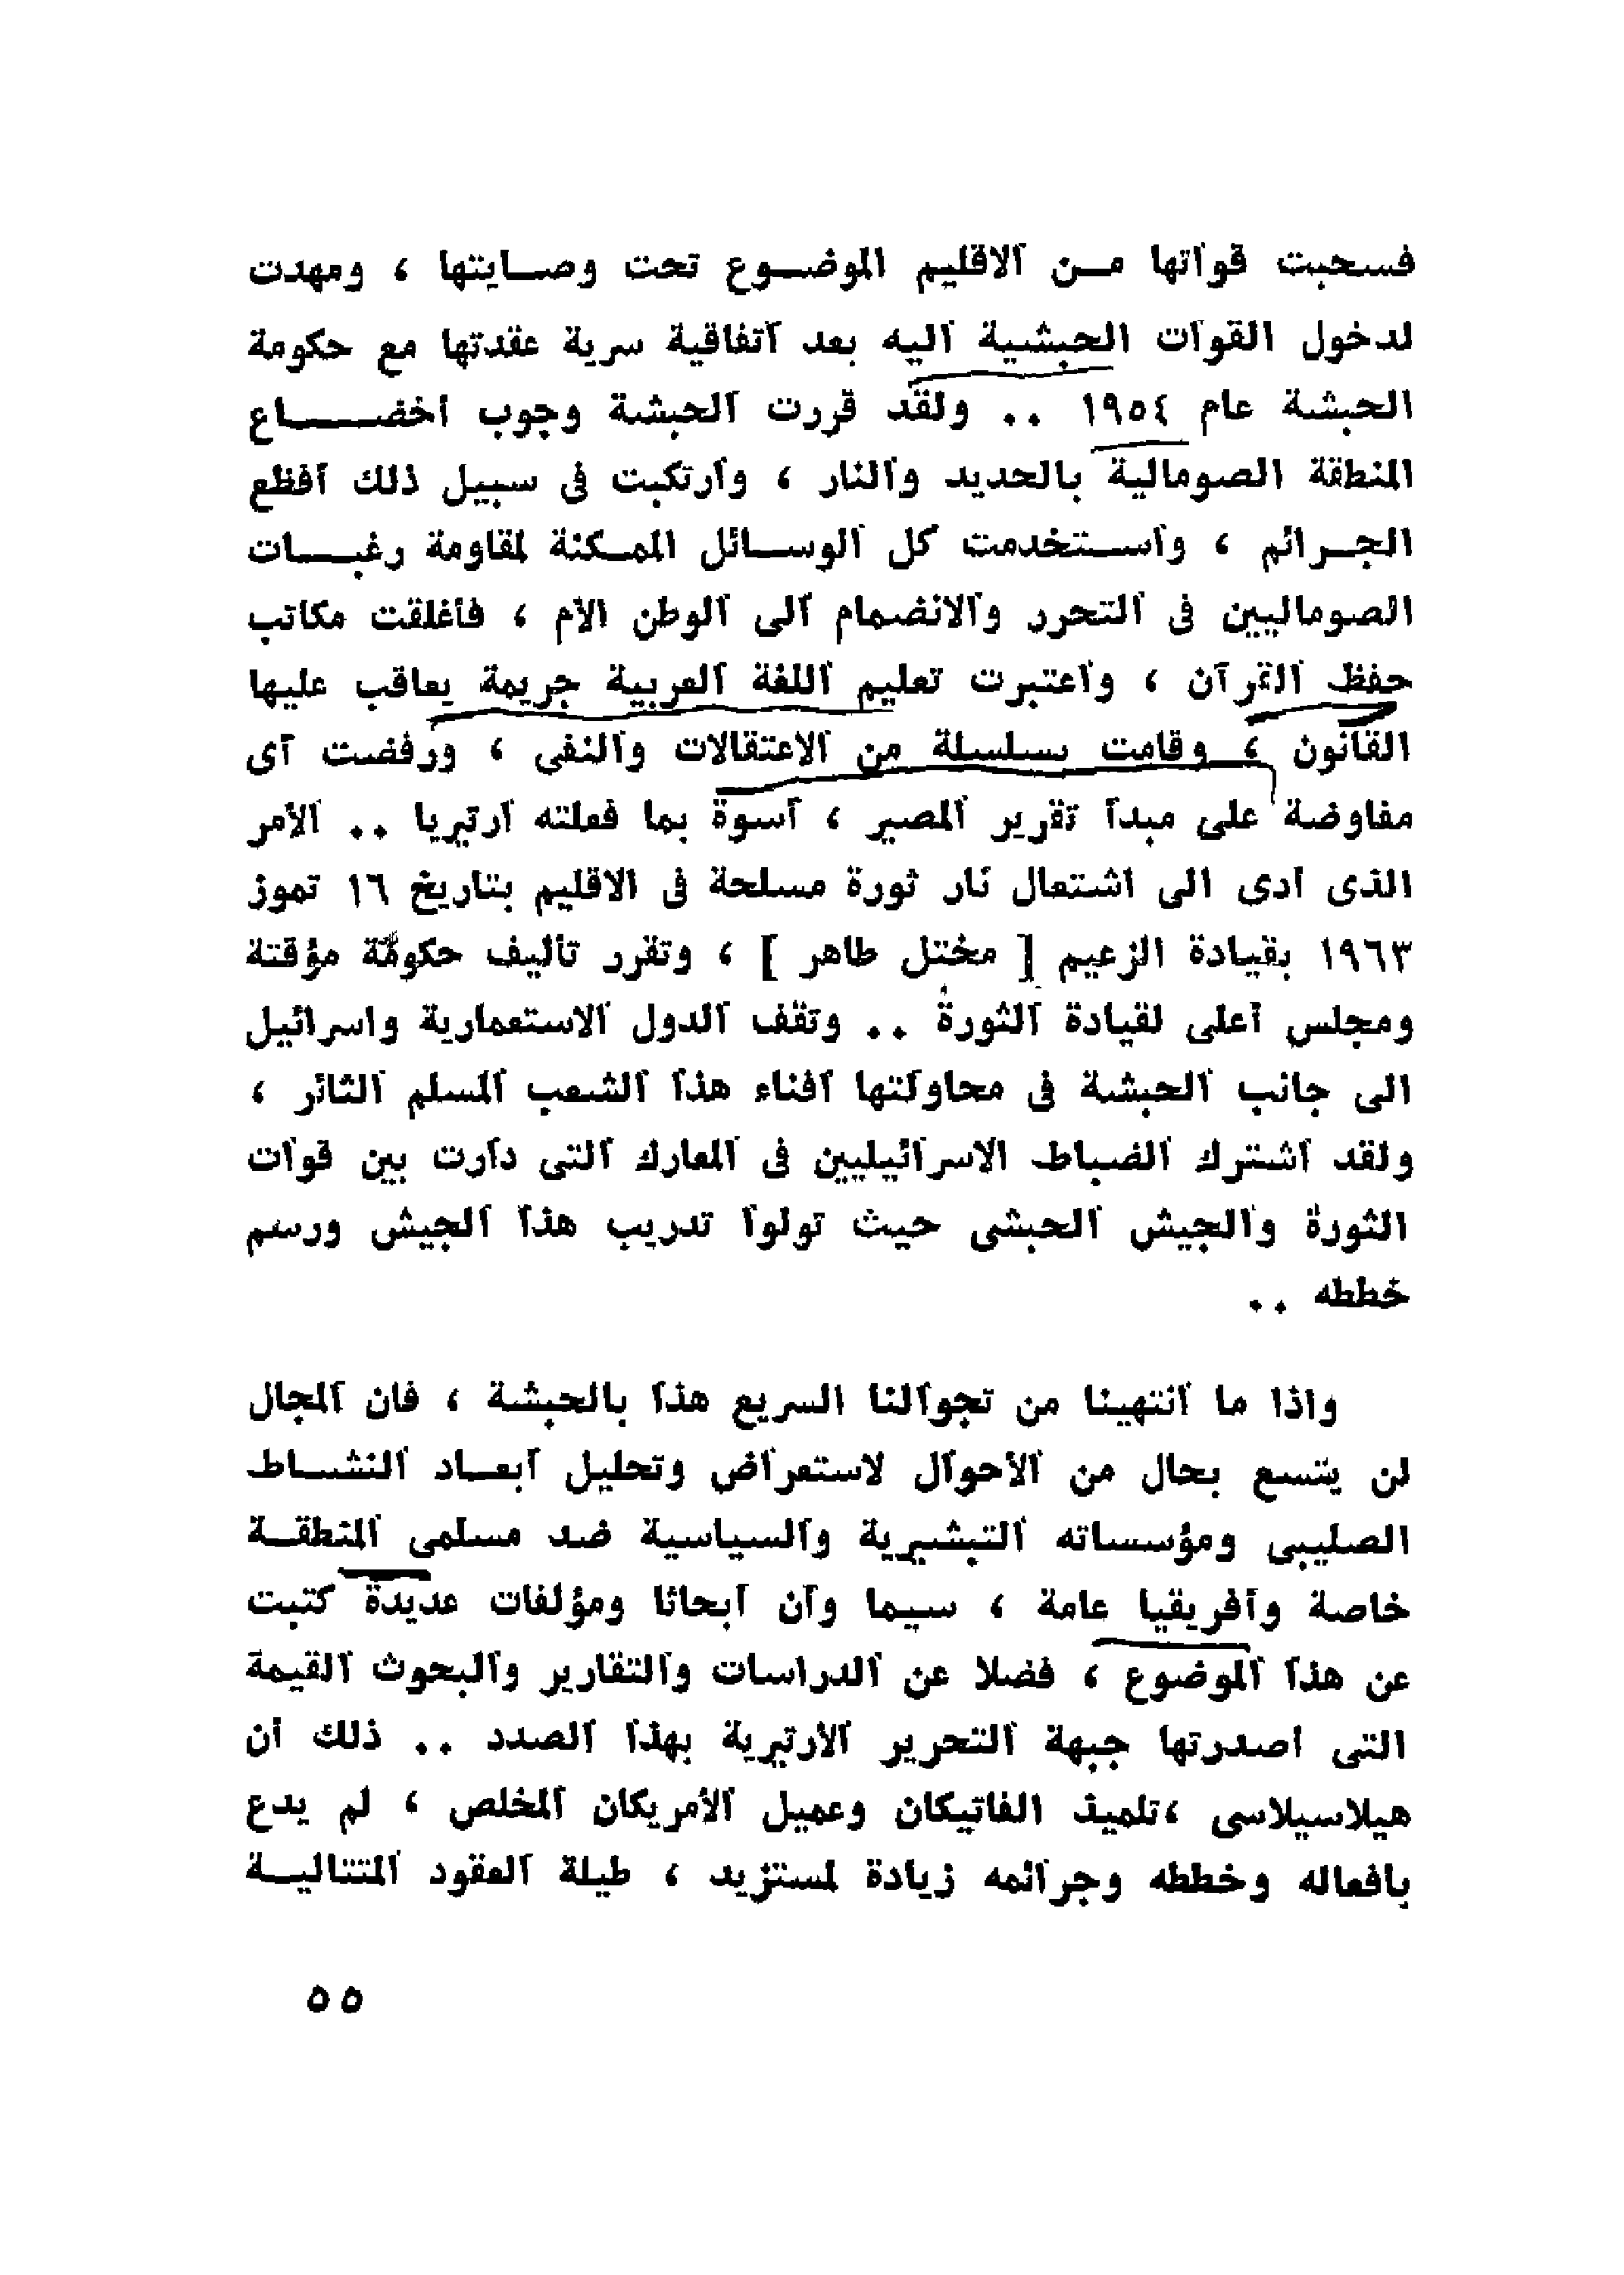 فسحبت قواتها من الاقليم الموضوع تحت وصايتها ، ومهدت
لدخول القوات الحبشية اليه بعد اتفاقية سرية عقدتها مع حكومة
الحبشة عام ١٩٥٤ .. ولقد قررت الحبشة وجوب اخضاع
المنطقة الصومالية بالحديد والنار ، وارتكبت فى سبيل ذلك أفظع
الجرائم ، واستخدمت كل الوسائل الممكنة لمقاومة رغبات
الصوماليين فى التحرد والانضمام الى الوطن الأم ، فأغلقت مكاتب
حفظ القرآن ، واعتبرت تعليم اللغة العربية جريمة يعاقب عليها
القانون ، وقامت بسلسلة من الاعتقالات والنفى ، ورفضت أى
مفاوضة على مبدأ تقرير المصير ، أسوة بما فعلته ارتيريا .. الأمر
الذى أدى الى اشتعال نار ثورة مسلحة فى الاقليم بتاريخ ١٦ تموز
١٩٦٣ بقيادة الزعيم [ مختل طاهر ] ، وتقرر تأليف حكومة مؤقتة
ومجلس أعلى لقيادة الثورة .. وتقف الدول الاستعمارية واسرائيل
الى جانب الحبشة فى محاولتها افناء هذا الشعب المسلم الثائر ،
ولقد اشترك الضباط الاسرائيليين فى المعارك التى دارت بين قوات
الثورة والجيش الحبشى حيث تولوا تدريب هذا الجيش ورسم
خططه ..
واذا ما انتهينا من تجوالنا السريع هذا بالحبشة ، فان المجال
لن يتسع بحال من الأحوال لاستعراض وتحليل أبعاد النشاط
الصليبى ومؤسساته التبشيرية والسياسية ضد مسلمى المنطقة
خاصة وأفريقيا عامة ، سيما وأن أبحاثا ومؤلفات عديدة كتبت
عن هذا الموضوع ، فضلا عن الدراسات والتقارير والبحوث القيمة
التى اصدرتها جبهة التحرير الارتيرية بهذا الصدد .. ذلك أن
هيلاسيلاسى ،تلميذ الفاتيكان وعميل الأمريكان المخلص ، لم يدع
بافعاله وخططه وجرائمه زيادة لمستزيد ، طيلة العقود المتتالية
٥٥